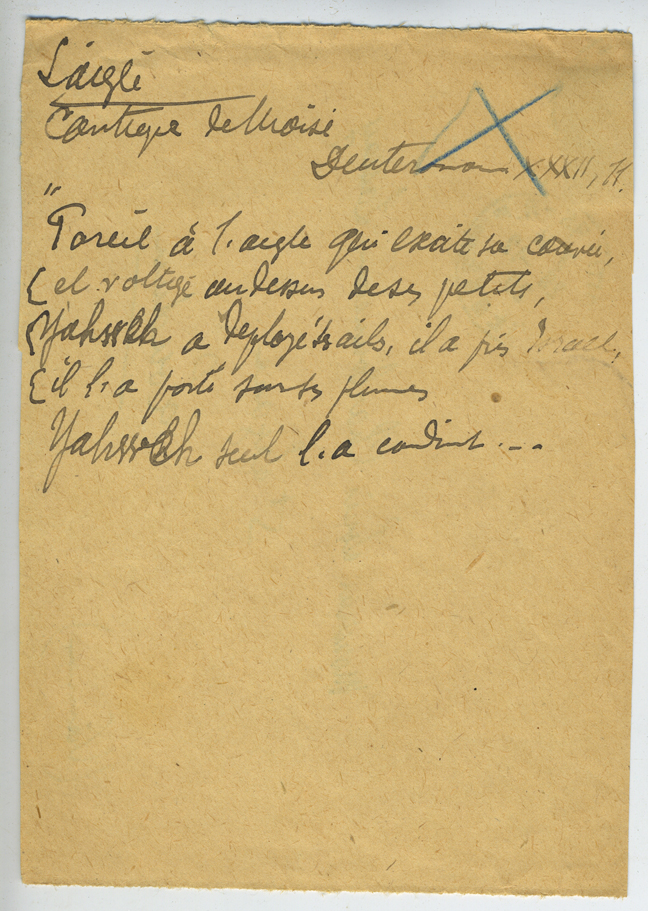 L'aigle
Cantique de Moïse
Deuteronome XXXII, 11.
"Pareil à l'aigle qui excite sa couvée,
et voltige au dessus de ses petits,
Yahweh a deployé ses ails, il a pris Israel,
il l'a porté sur ses plumes
Yahweh seul l'a conduit...